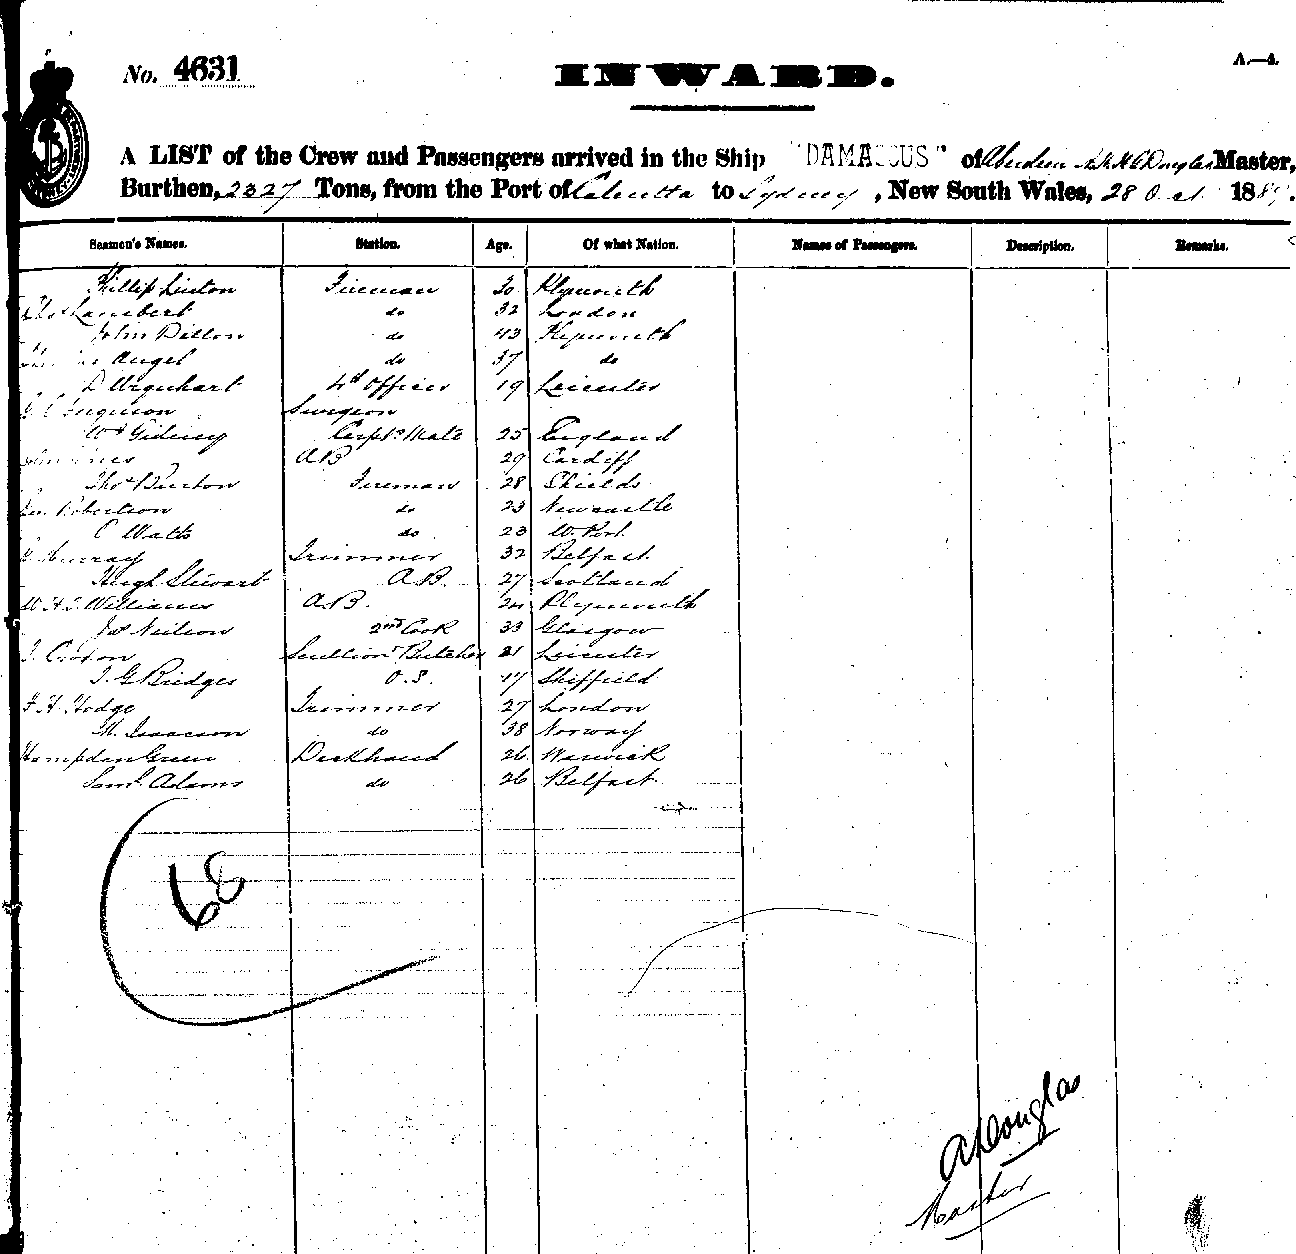 No. 4631
INWARD.
A.—4.
A LIST of the Crew and Passengers arrived in the Ship "DAMASCUS" of Aberdeen Douglas Master,
Burthen, 2327 Tons, from the Port of Calcutta to Sydney, New South Wales, 28 Oct 188
Seamen's Names. Station. Age. Of what Nation. Names of Passengers. Description. Remarks.
Phillip Linton Fireman 30 Plymouth
Lambert do 32 London
John Dillon do 43 Plymouth
Angel do 37 do
D Urquhart 4th Officer 19 Leicester
Ferguson Surgeon
Wm Gidney Carptrs Mate 25 England
A B 29 Cardiff
Thos Burton Fireman 28 Shields
Robertson do 23 Newcastle
C Watts do 23 W. Port
Murray Trimmer 32 Belfast
Hugh Stewart A.B. 27 Scotland
W.H.J. Williams A.B. 24 Plymouth
Jas Neilson 2nd Cook 33 Glasgow
J. Croxon Scullion & Butcher 21 Leicester
J. G Bridges O.S. 17 Sheffield
F. H. Hodge Trimmer 27 London
M. Isaacson do 38 Norway
Hampden Green Deckhand 26 Warwick
Saml Adams do 26 Belfast
68
A Douglas
Master